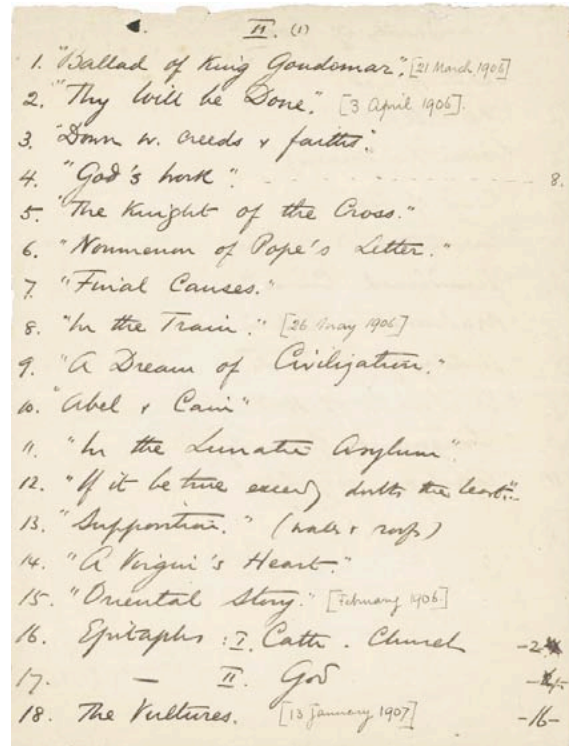 II. (1)
1. "Ballad of King Gondomar". [21 March 1906]
2. "Thy Will be Done." [3 April 1906].
3. "Down w. creeds & faiths".
4. "God's work". 8.
5. "The Knight of the Cross."
6. "Noumenon of Pope's Letter."
7. "Final Causes."
8. "In the Train." [26 May 1906]
9. "A Dream of Civilization."
10. "Abel & Cain"
11. "In the Lunatic Asylum".
12. "If it be true the least".
13. "Supposition." (walls & roofs)
14. "A Virgin's Heart."
15. "Oriental Story." [February 1906]
16. Epitaphs : I. Cath. Church -2
17. — II. God
18. The Vultures. [13 January 1907] -16-